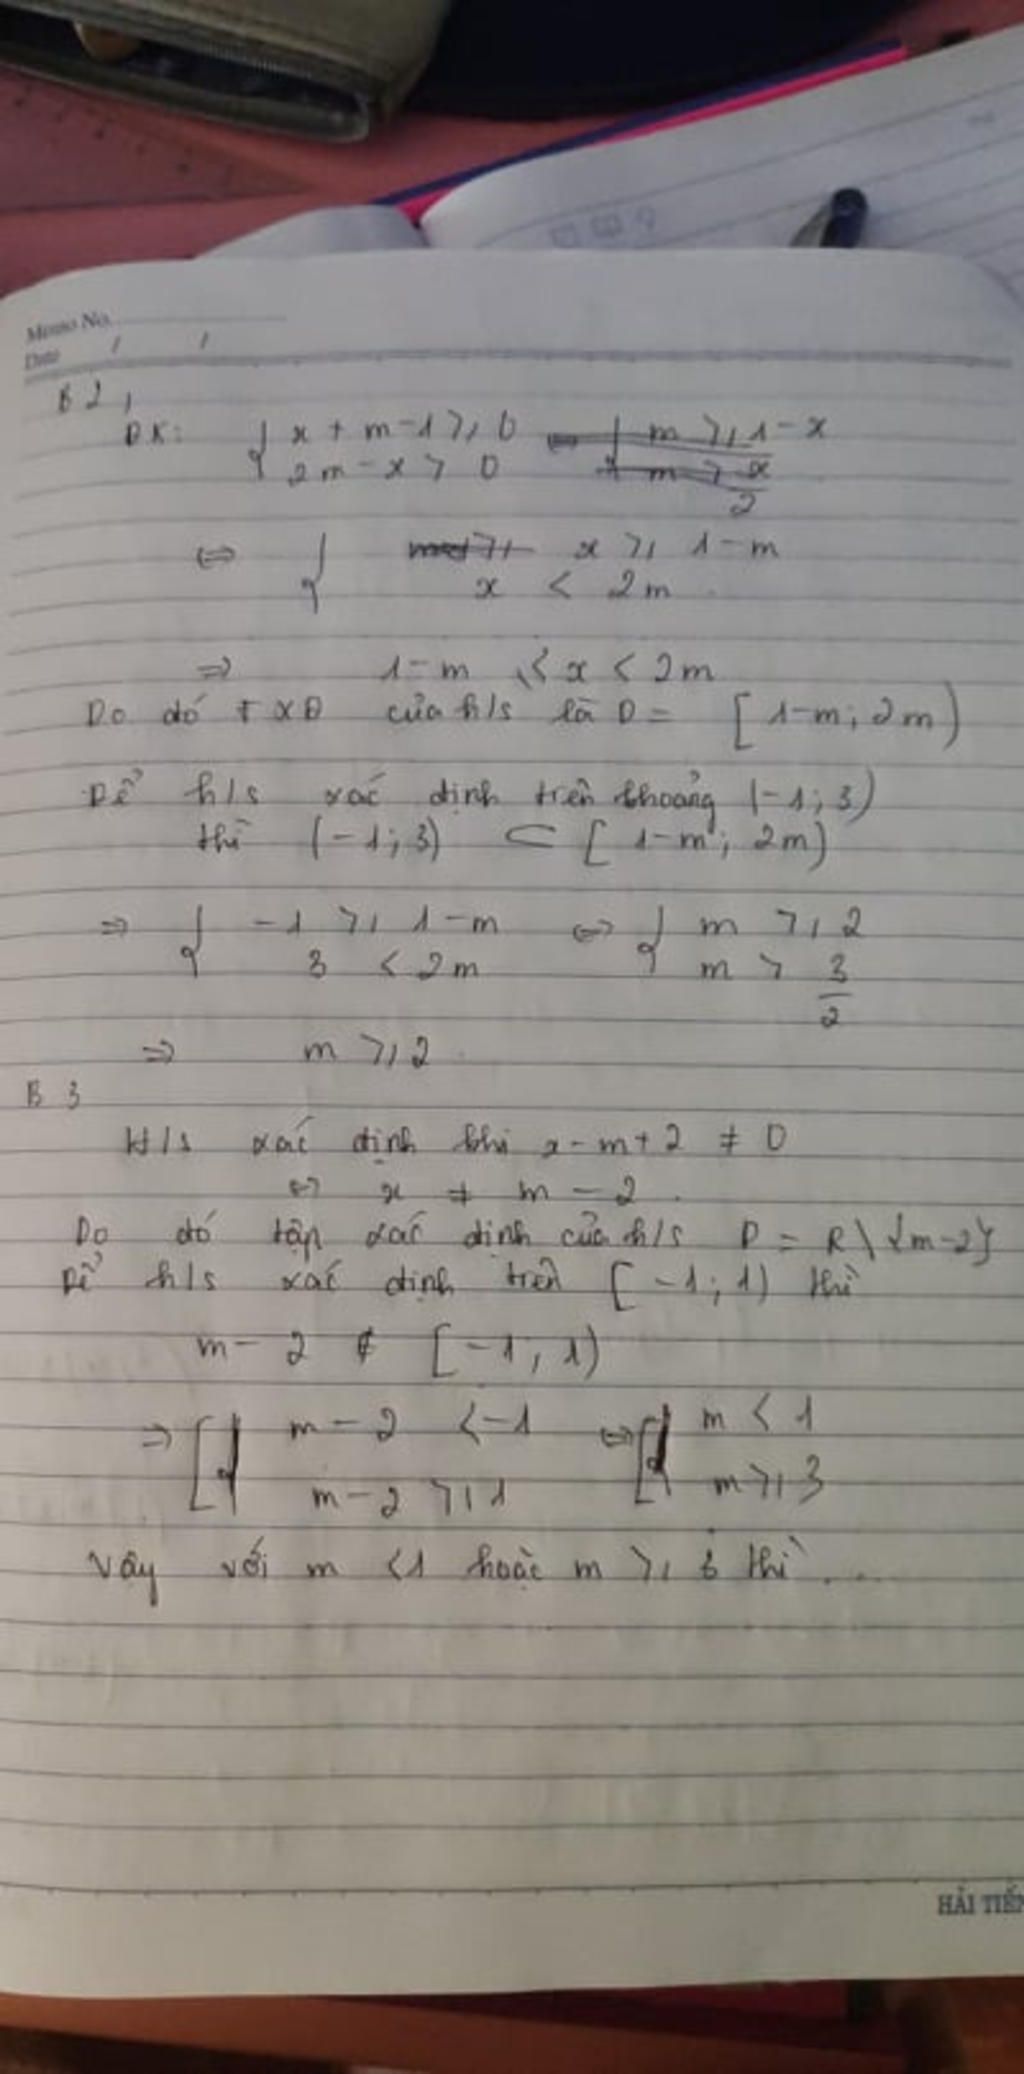 Memo No.
Date / /
B2,
ĐK: { x + m - 1 ≥ 0
2m - x > 0
m ≥ 1 - x
m > x/2
⇔ { x ≥ 1 - m
x < 2m
⇒ 1 - m ≤ x < 2m
Do đó TXĐ của h/s là D = [1-m; 2m)
Để h/s xác định trên khoảng (-1; 3)
thì (-1; 3) ⊂ [1-m; 2m)
⇒ { -1 ≥ 1-m ⇔ { m ≥ 2
3 < 2m m > 3/2
⇒ m ≥ 2
B3
H/s xác định khi x - m + 2 ≠ 0
⇔ x ≠ m - 2.
Do đó tập xác định của h/s D = R \ {m-2}
Để h/s xác định trên [-1; 1) thì
m - 2 ∉ [-1; 1)
⇒ [ m - 2 < -1 ⇔ [ m < 1
m - 2 ≥ 1 m ≥ 3
Vậy với m < 1 hoặc m ≥ 3 thì ....
HẢI TIẾN